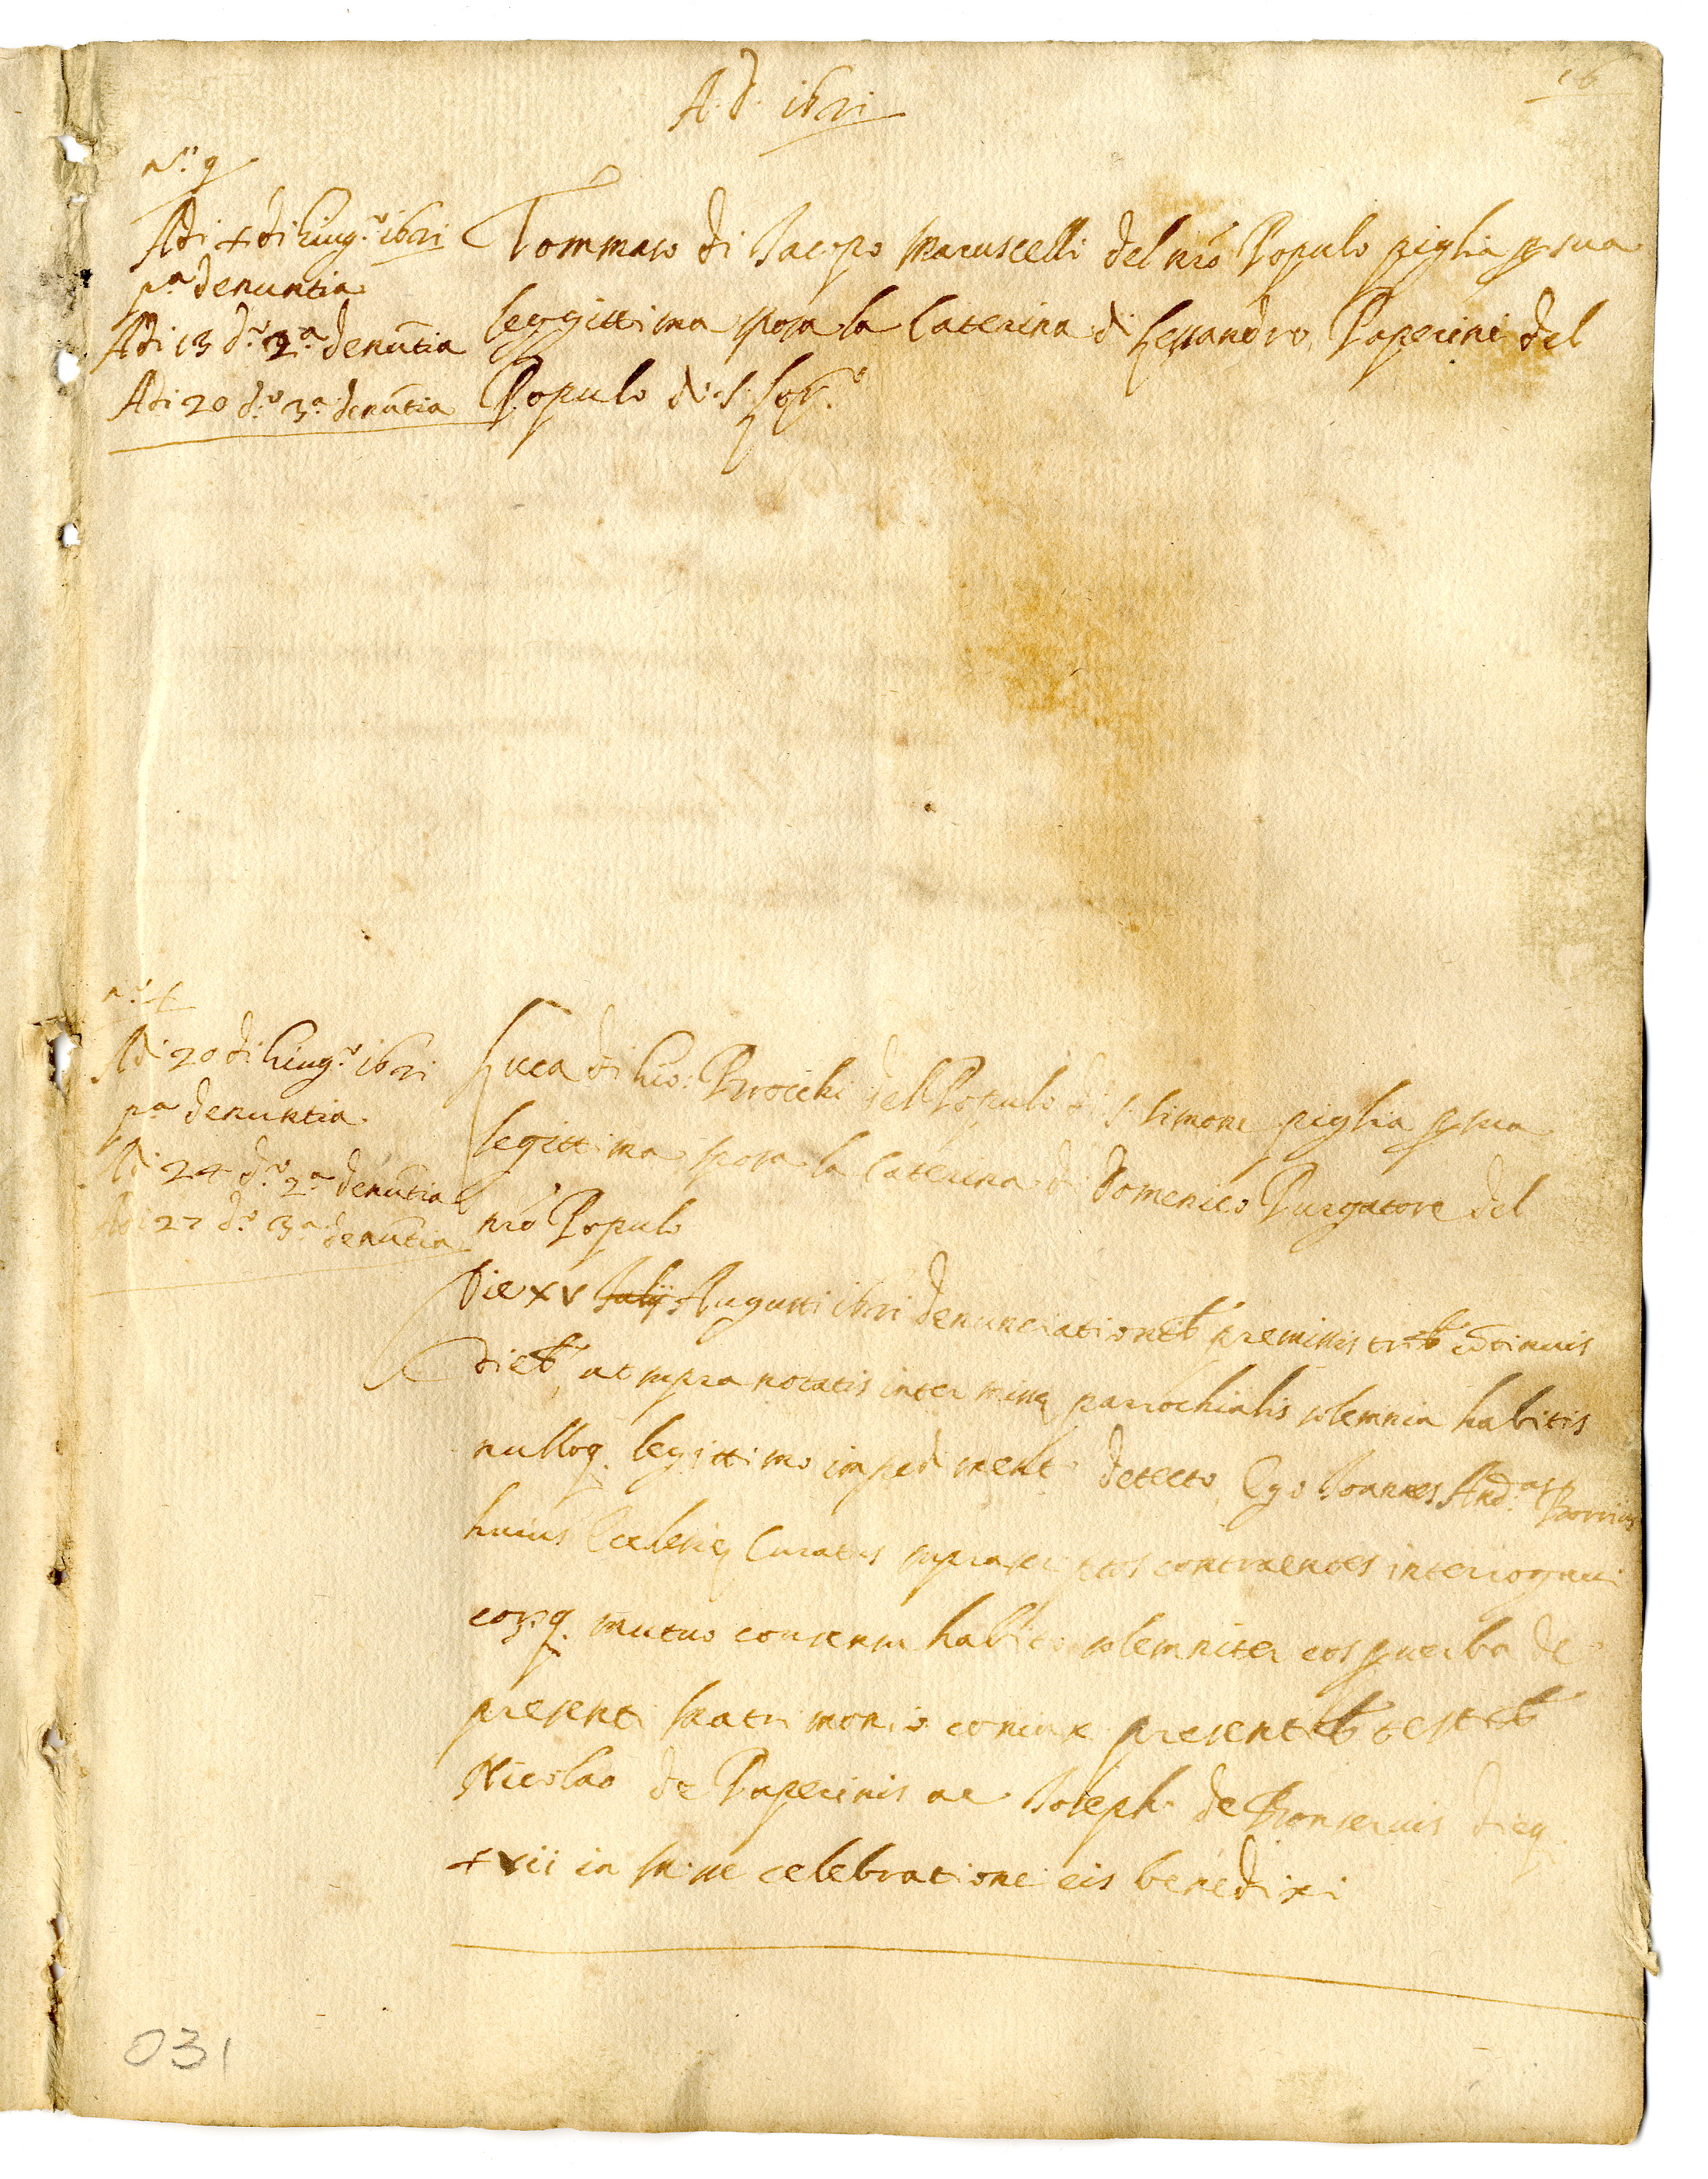 A. d. 1621
16
n.º 9
Adi + di Giug.º 1621
p.ª denuntia
Adi 13 d.º 2.ª denūtia
Adi 20 d.º 3.ª denūtia
Tommaso di Jacopo Maruscelli del nrō Populo piglia p sua
leggittima sposa la Caterina di Lessandro Paperini del
Populo di S. Lor.º
Adi 20 di Giug.º 1621
p.ª denuntia
Adi 24 d.º 2.ª denūtia
Adi 27 d.º 3.ª denūtia
Luca di Gio: Brocchi del Populo di S. Simone piglia p sua
legittima sposa la Caterina di Domenico Purgatore del
nrō Populo
Die XV Julij Augusti 1621 denunciationib premissis trib cōtinuis
dieb, ut supra notatis inter misse parrochialis solemnia habitis
nulloq. legittimo impedimento detecto Ego Joannes And.as
huius Ecclesie Curatus suprascriptos contraentes interrogaui
eorq. mutuo consensu habito solemniter eos p uerba de
presenti Matrimonio coniunx presentib testib
Nicolao de Paperinis ac Joseph de dieq
xvii in Misse celebratione eis benedixi
031